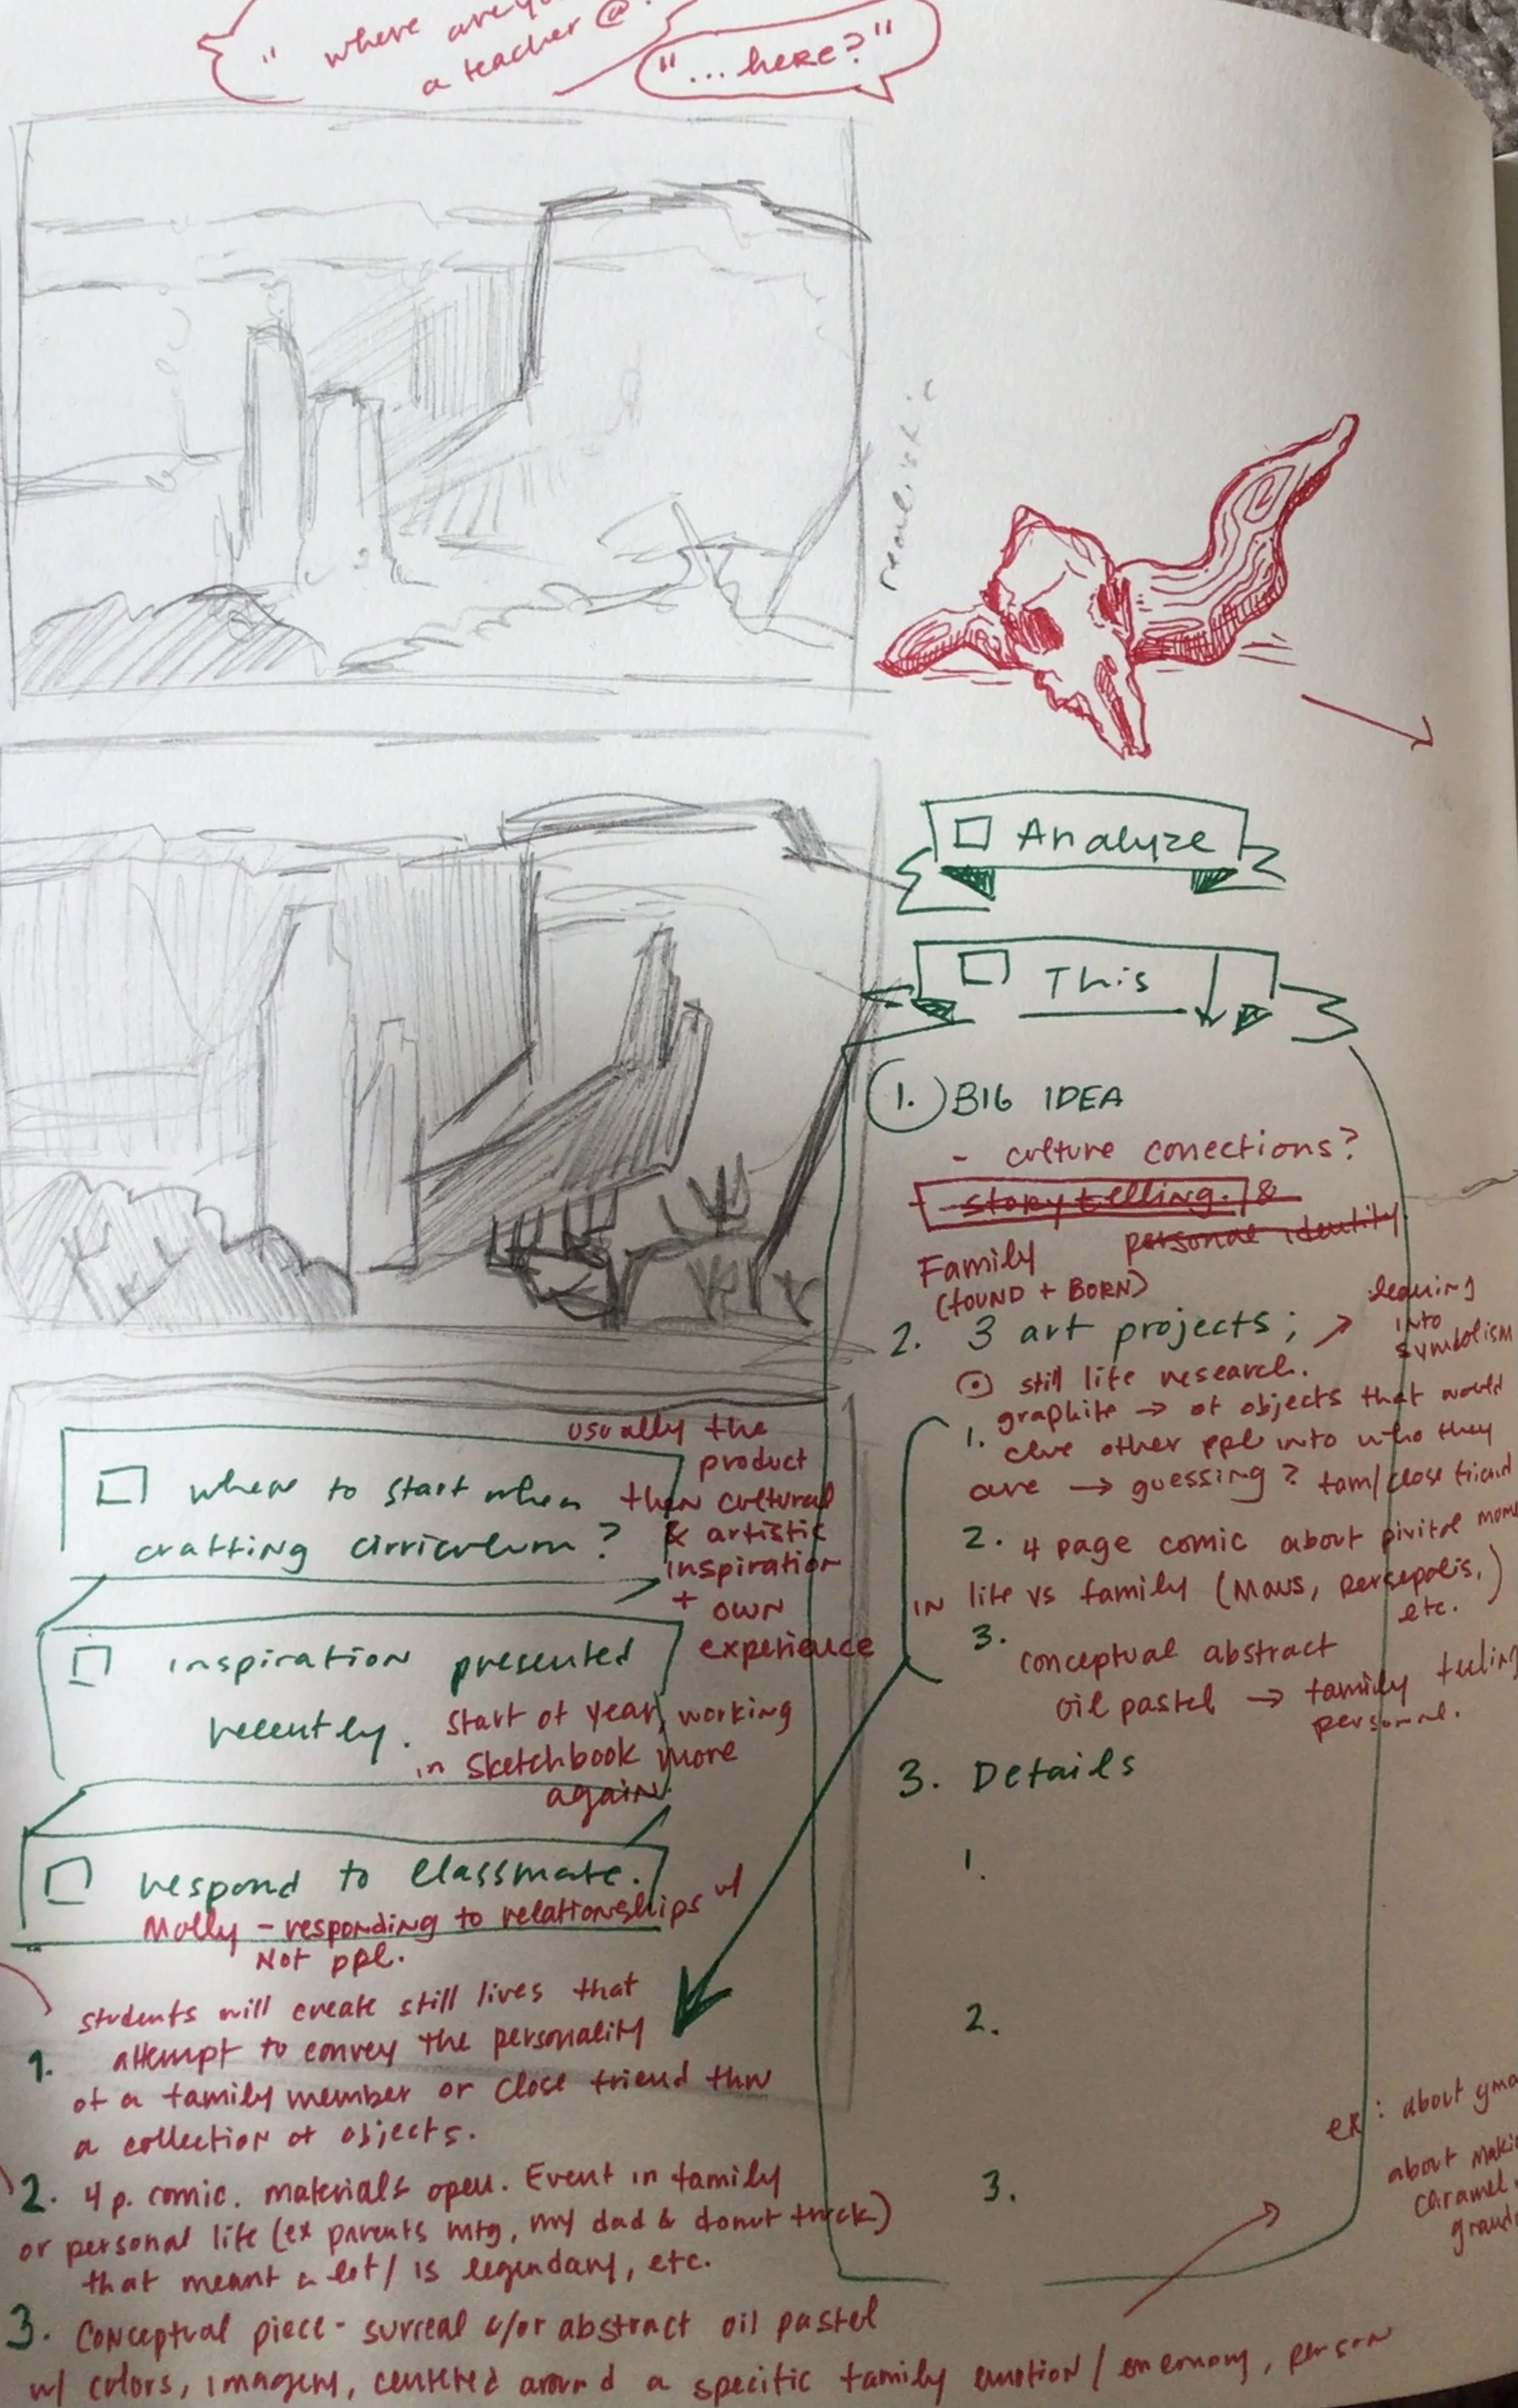 " where are
a teacher @
"... here?"
realistic
Analyze
This
1. BIG IDEA
- culture conections?
- story telling. &
personal identity
Family
(FOUND + BORN)
2. 3 art projects; → leaning
into
symbolism
still life research.
1. graphite → of objects that would
clue other ppl into who they
are → guessing? fam/close friend
2. 4 page comic about pivital
in life vs family (Maus, persepolis,
etc.)
3. conceptual abstract
oil pastel → family
personal.
3. Details
1.
2.
3.
ex: about
about
caramel
where to start when
crafting cirriculum?
usually the
product
then cultural
& artistic
inspiration
+ own
experience
inspiration presented
recently.
start of year, working
in sketchbook more
again.
respond to classmate.
Molly - responding to relationships w/
Not ppl.
students will create still lives that
1. attempt to convey the personality
of a family member or close friend thru
a collection of objects.
2. 4 p. comic. materials open. Event in family
or personal life (ex parents mtg, my dad & donut truck)
that meant a lot / is legendary, etc.
3. Conceptual piece - surreal &/or abstract oil pastel
w/ colors, imagery, centered around a specific family emotion / memory, person